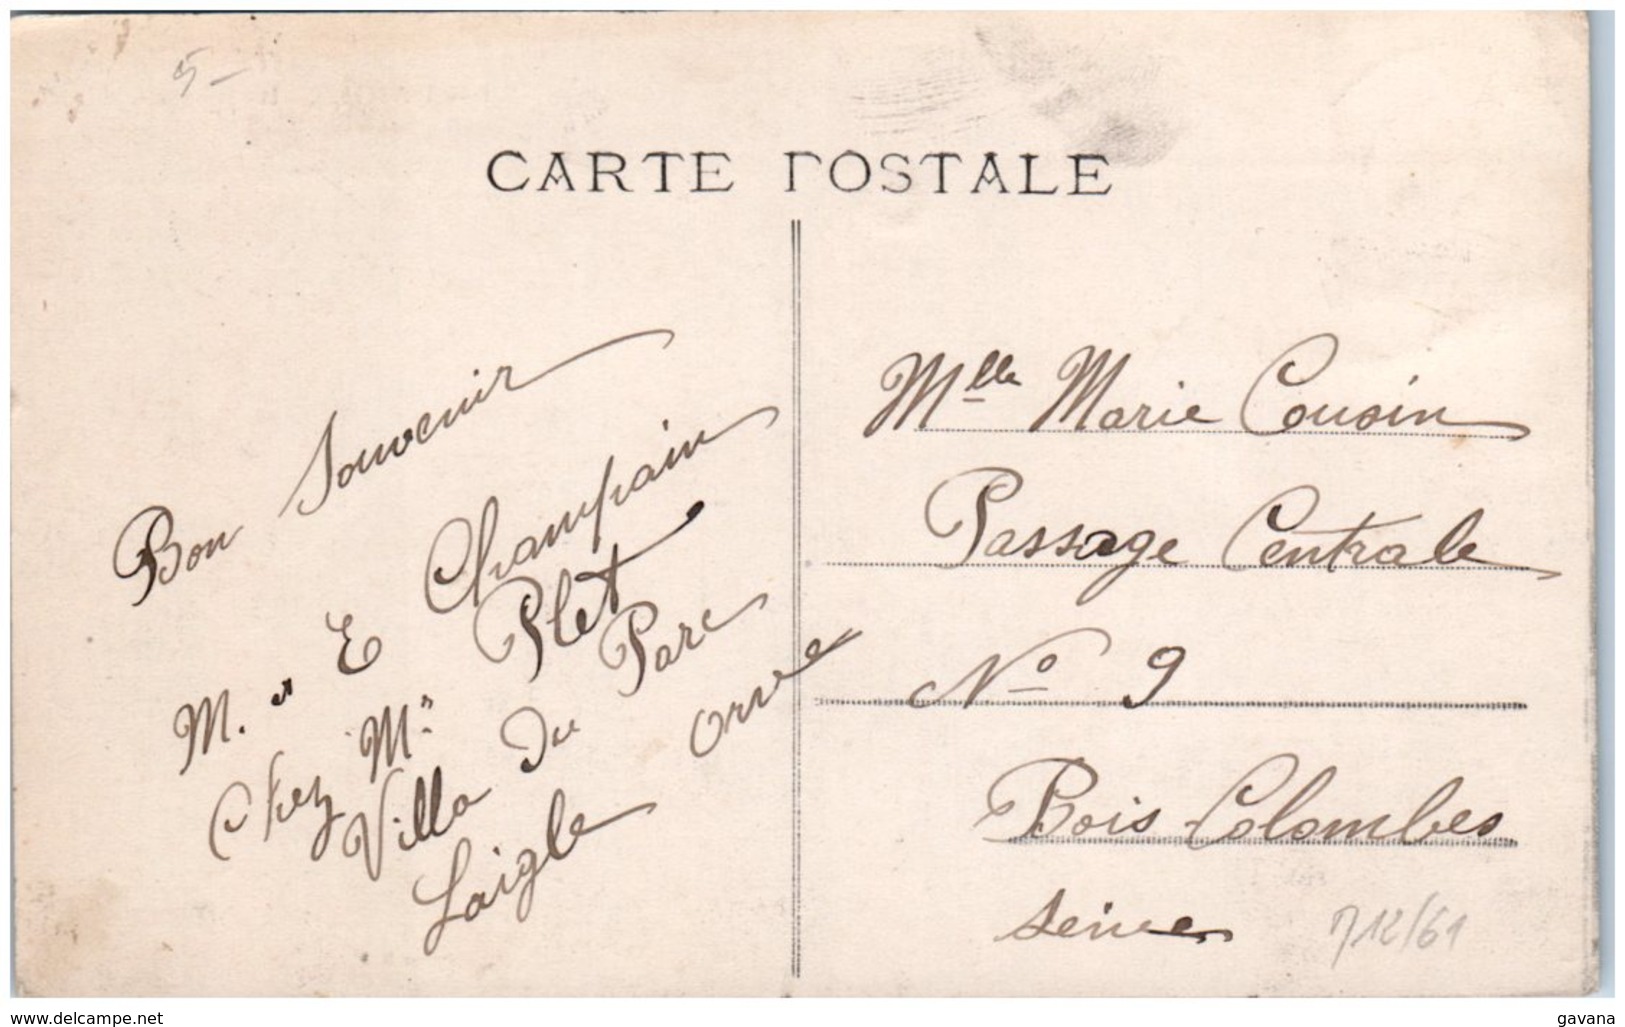 5-
CARTE POSTALE
Bon Souvenir
M. et E Champain
Chez Mr Plet
Villa Du Parc
Laigle Orne
Mlle Marie Cousin
Passage Centrale
No 9
Bois-Colombes
Seine
712/61
www.delcampe.net
gavana